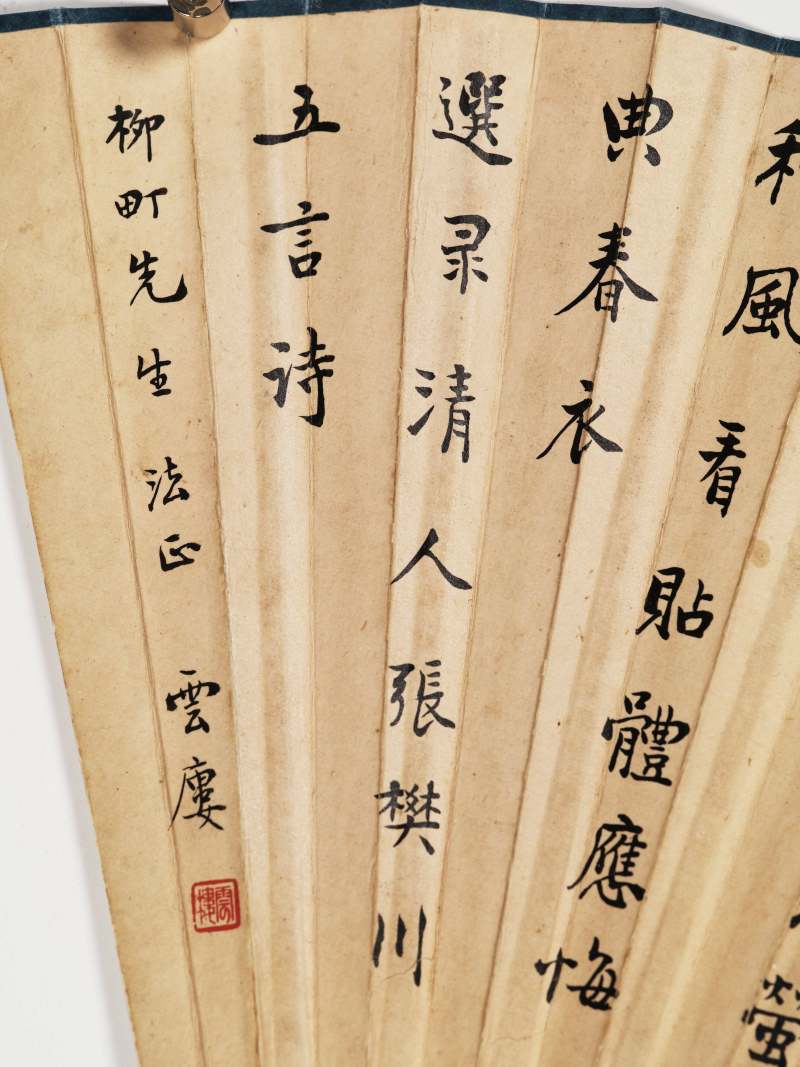 和風
螢
看貼體應悔
典春衣
選录清人張樊川
五言诗
柳町先生 法正 雲廔
雲棲